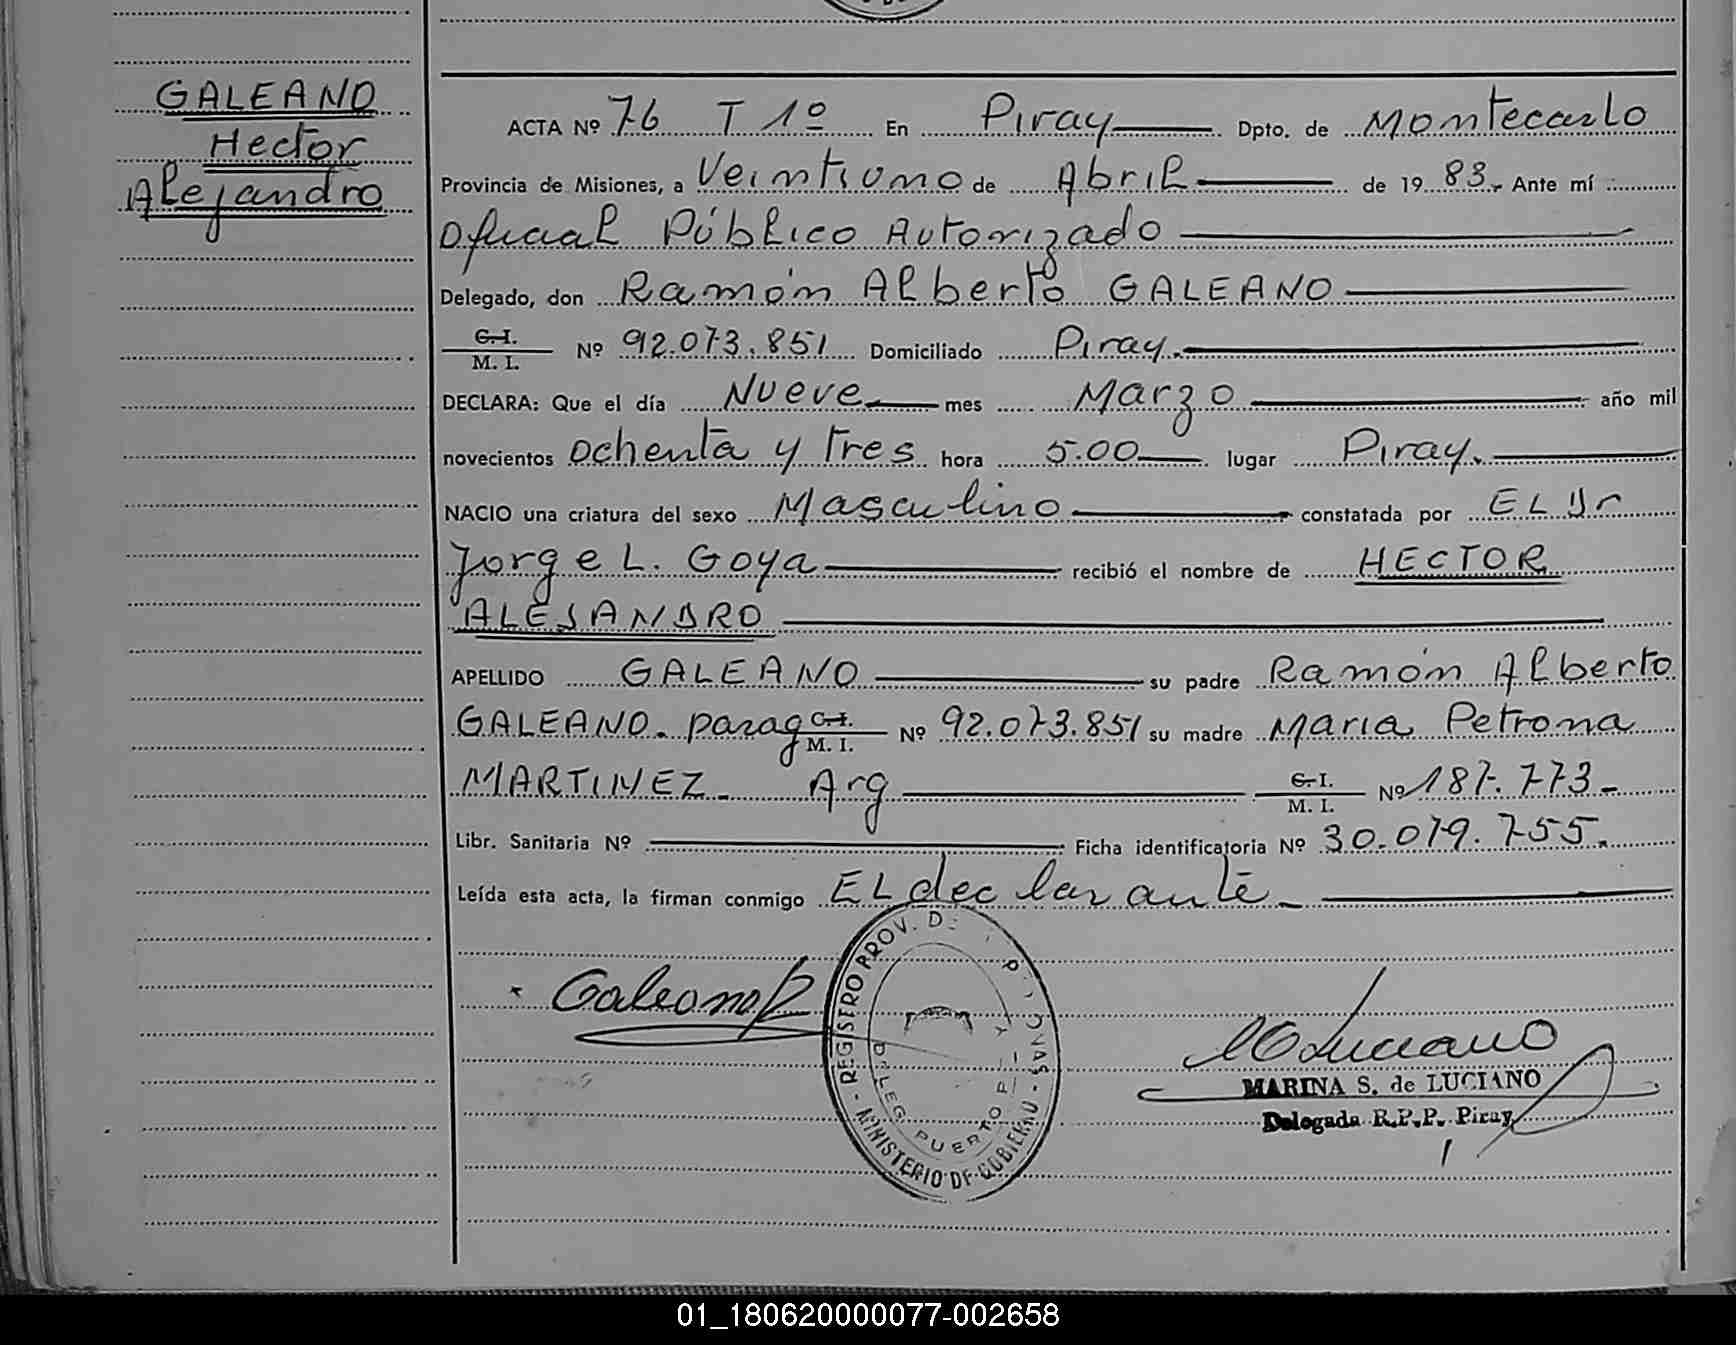 GALEANO
Hector
Alejandro
ACTA Nº 76 T 1º En Piray Dpto. de Montecarlo
Provincia de Misiones, a Veintiuno de Abril de 1983.- Ante mí
Oficial Público Autorizado
Delegado, don Ramón Alberto GALEANO
C.I. M. I. Nº 92.073.851 Domiciliado Piray.
DECLARA: Que el día Nueve mes Marzo año mil
novecientos Ochenta y Tres hora 5.00 lugar Piray.
NACIO una criatura del sexo Masculino constatada por EL Dr
Jorge L. Goya recibió el nombre de HECTOR
ALEJANDRO
APELLIDO GALEANO su padre Ramón Alberto
GALEANO. parag C.I. M. I. Nº 92.073.851 su madre Maria Petrona
MARTINEZ. Arg C.I. M. I. Nº 187.773-
Libr. Sanitaria Nº Ficha identificatoria Nº 30.079.755.
Leída esta acta, la firman conmigo EL declarante.
Galeano R
REGISTRO PROV. D
MINISTERIO DE GOBIERNO
DELEG. PUERTO
Luciano
MARINA S. de LUCIANO
Delegada R.P.P. Piray
01_180620000077-002658